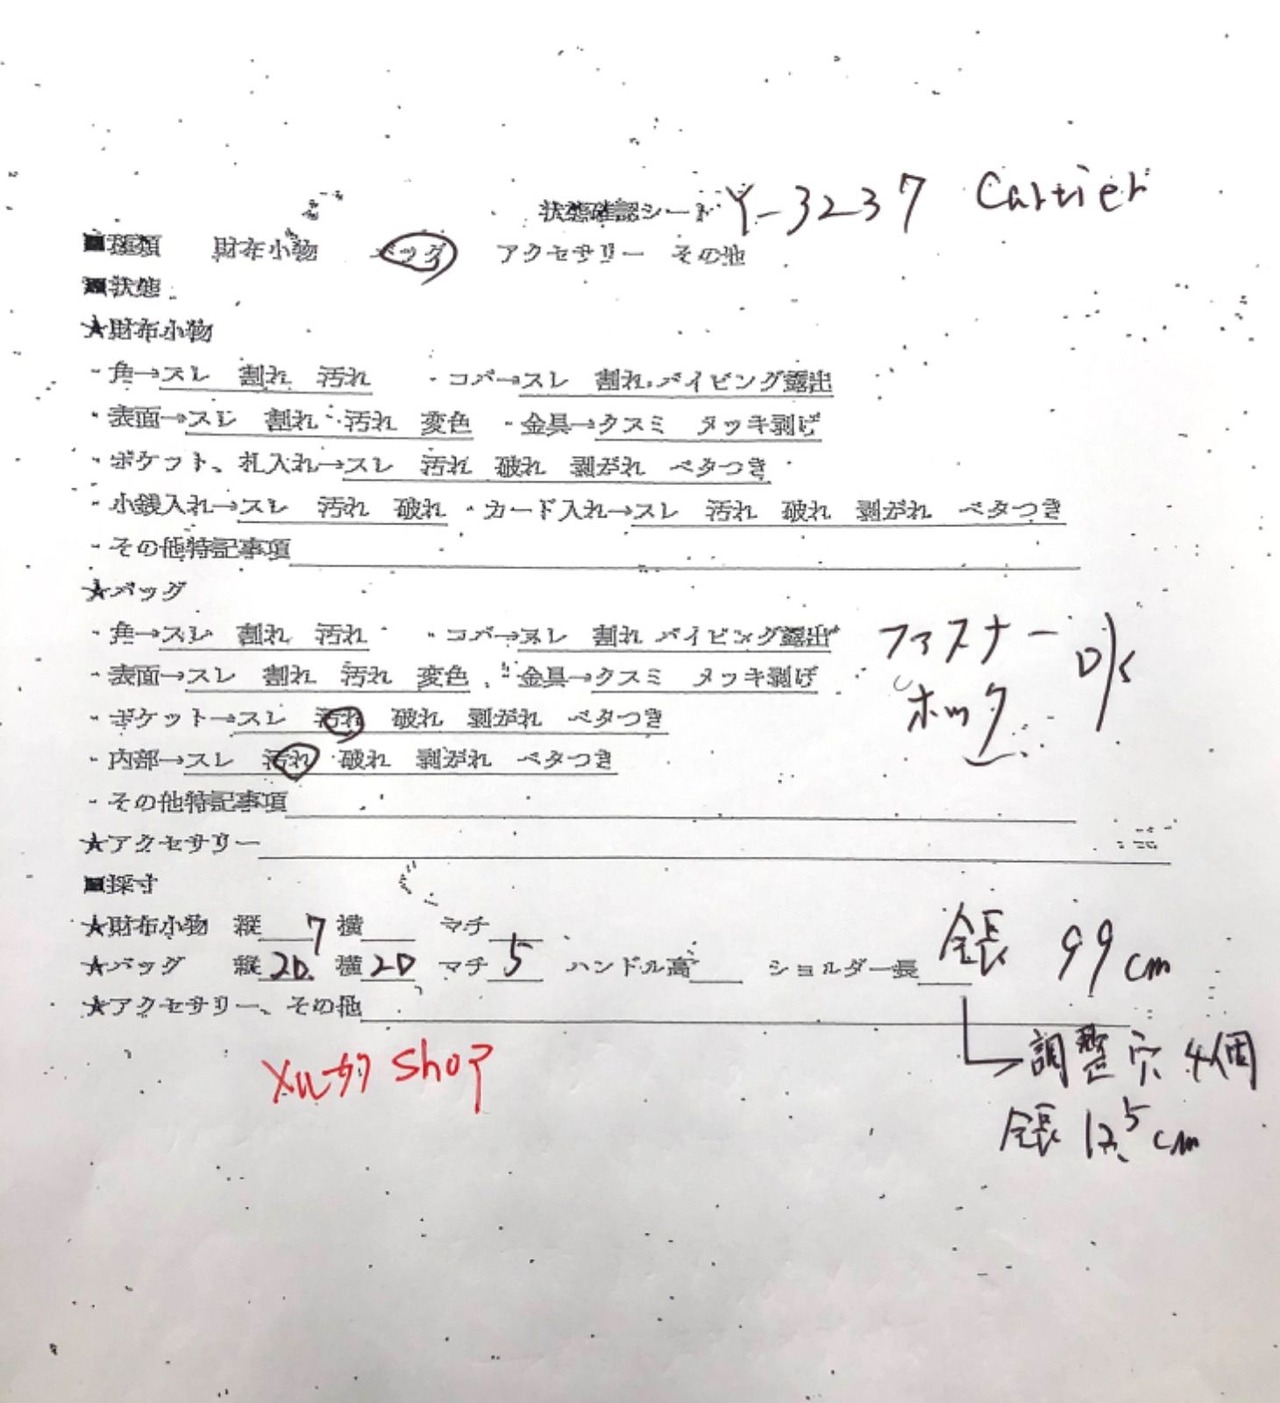 状態確認シート Y-3237 Cartier
■種類 財布小物 バッグ アクセサリー その他
■状態
★財布小物
・角→スレ 割れ 汚れ ・コバ→スレ 割れ パイピング露出
・表面→スレ 割れ 汚れ 変色 ・金具→クスミ メッキ剥げ
・ポケット、札入れ→スレ 汚れ 破れ 剥がれ ベタつき
・小銭入れ→スレ 汚れ 破れ ・カード入れ→スレ 汚れ 破れ 剥がれ ベタつき
・その他特記事項
★バッグ
・角→スレ 割れ 汚れ ・コバ→スレ 割れ パイピング露出
・表面→スレ 割れ 汚れ 変色 ・金具→クスミ メッキ剥げ
ファスナー
ホック
・ポケット→スレ 汚れ 破れ 剥がれ ベタつき
・内部→スレ 汚れ 破れ 剥がれ ベタつき
・その他特記事項
★アクセサリー
■採寸
★財布小物 縦 7 横 マチ
★バッグ 縦 20 横 20 マチ 5 ハンドル高 ショルダー長 全長 99cm
★アクセサリー、その他
調整穴 4個
全長 12.5cm
shop